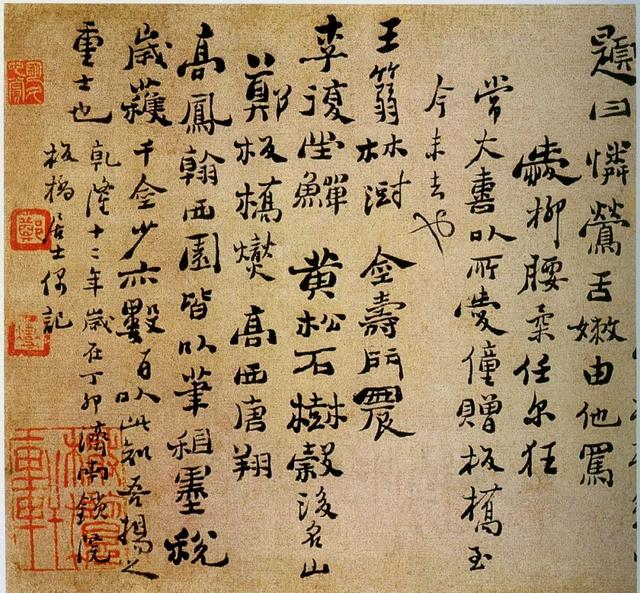 題曰憐鶯舌嫩由他罵
愛柳腰柔任尔狂
常大喜以所愛僮贈板橋至
今未去也
王箬林澍 金壽門農
李復堂鱓 黃松石樹穀後名山
鄭板橋燮 高西唐翔
高鳳翰西園皆以筆租墨稅
歲獲千金少亦數百以此知吾揚之
重士也
乾隆十二年歲在丁卯濟南鎖院
板橋居士偶記
鄭